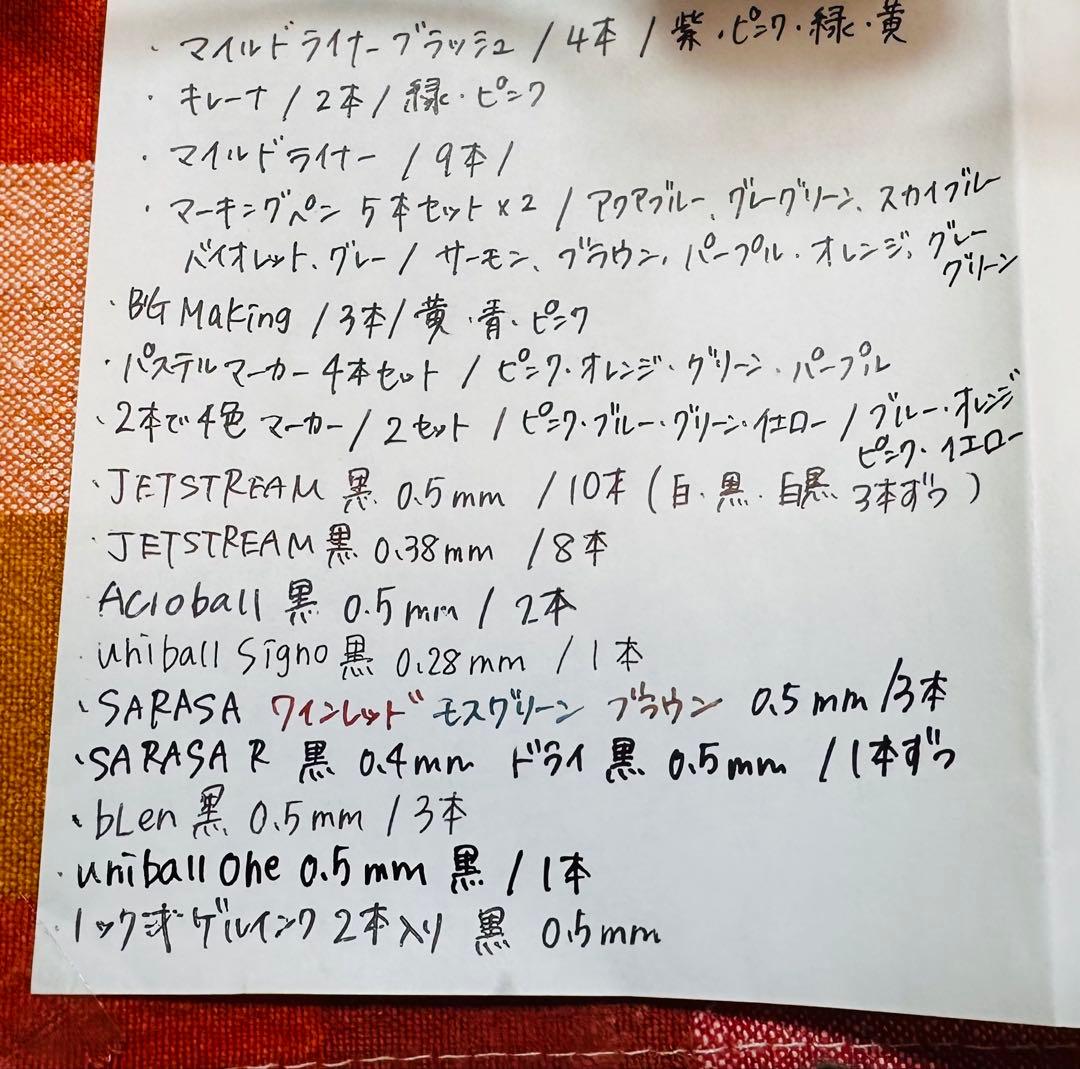 ・マイルドライナーブラッシュ / 4本 / 紫・ピンク・緑・黄
・キレーナ / 2本 / 緑・ピンク
・マイルドライナー / 9本 /
・マーキングペン 5本セット×2 / アクアブルー、グレーグリーン、スカイブルー
バイオレット、グレー / サーモン、ブラウン、パープル・オレンジ、グレー
グリーン
・BG Making / 3本 / 黄・青・ピンク
・パステルマーカー 4本セット / ピンク・オレンジ・グリーン・パープル
・2本で4色 マーカー / 2セット / ピンク・ブルー・グリーン・イエロー / ブルー・オレンジ
ピンク・イエロー
・JETSTREAM 黒 0.5mm / 10本 (白・黒・白黒 3本ずつ)
・JETSTREAM 黒 0.38mm / 8本
Acroball 黒 0.5mm / 2本
・uniball Signo 黒 0.28mm / 1本
・SARASA ワインレッド モスグリーン ブラウン 0.5mm / 3本
・SARASA R 黒 0.4mm ドライ 黒 0.5mm / 1本ずつ
・bLen 黒 0.5mm / 3本
・uniball One 0.5mm 黒 / 1本
・ノック式ゲルインク 2本入り 黒 0.5mm